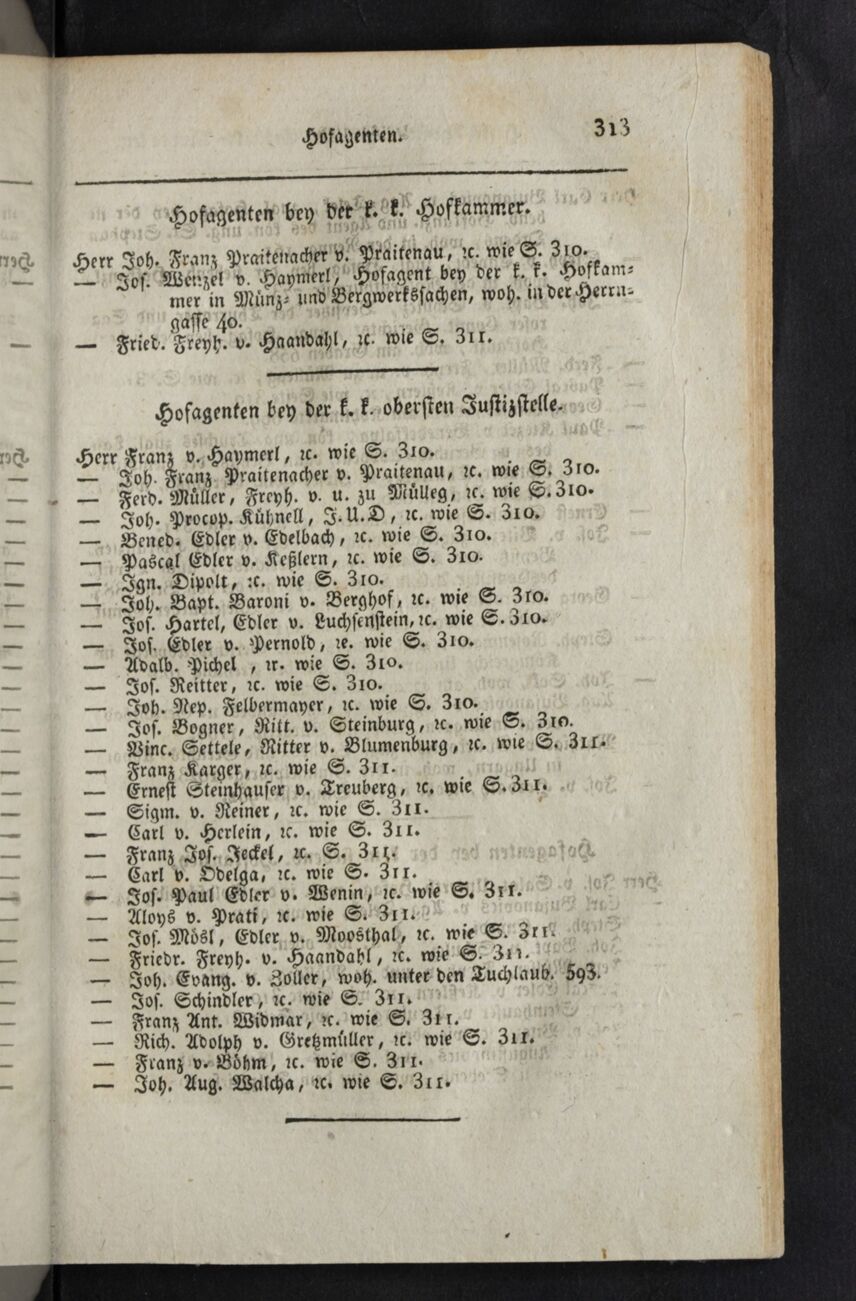 Hofagenten. 313
Hofagenten bey der k. k. Hofkammer.
Herr Joh. Franz Praitenacher v. Praitenau, ꝛc. wie S. 310.
— Jos. Wenzel v. Haymerl, Hofagent bey der k. k. Hofkam⸗
mer in Münz⸗ und Bergwerkssachen, woh. in der Herrn⸗
gasse 40.
— Fried. Freyh. v. Haandahl, ꝛc. wie S. 311.
Hofagenten bey der k. k. obersten Justizstelle.
Herr Franz v. Haymerl, ꝛc. wie S. 310.
— Joh. Franz Praitenacher v. Praitenau, ꝛc. wie S. 310.
— Ferd. Müller, Freyh. v. u. zu Mülleg, ꝛc. wie S. 310.
— Joh. Procop. Kühnell, J.U.D, ꝛc. wie S. 310.
— Bened. Edler v. Edelbach, ꝛc. wie S. 310.
— Pascal Edler v. Keßlern, ꝛc. wie S. 310.
— Ign. Dipolt, ꝛc. wie S. 310.
— Joh. Bapt. Baroni v. Berghof, ꝛc. wie S. 310.
— Jos. Hartel, Edler v. Luchsenstein, ꝛc. wie S. 310.
— Jos. Edler v. Pernold, ꝛe. wie S. 310.
— Adalb. Pichel , ꝛr. wie S. 310.
— Jos. Reitter, ꝛc. wie S. 310.
— Joh. Nep. Felbermayer, ꝛc. wie S. 310.
— Jos. Bogner, Ritt. v. Steinburg, ꝛc. wie S. 310.
— Vinc. Settele, Ritter v. Blumenburg, ꝛc. wie S. 311.
— Franz Karger, ꝛc. wie S. 311.
— Ernest Steinhauser v. Treuberg, ꝛc. wie S. 311.
— Sigm. v. Reiner, ꝛc. wie S. 311.
— Carl v. Herlein, ꝛc. wie S. 311.
— Franz Jos. Jeckel, ꝛc. S. 311.
— Carl v. Odelga, ꝛc. wie S. 311.
— Jos. Paul Edler v. Wenin, ꝛc. wie S. 311.
— Aloys v. Prati, ꝛc. wie S. 311.
— Jos. Mösl, Edler v. Moosthal, ꝛc. wie S. 311.
— Friedr. Freyh. v. Haandahl, ꝛc. wie S. 311.
— Joh. Evang. v. Zoller, woh. unter den Tuchlaub. 593.
— Jos. Schindler, ꝛc. wie S. 311.
— Franz Ant. Widmar, ꝛc. wie S. 311.
— Rich. Adolph v. Gretzmüller, ꝛc. wie S. 311.
— Franz v. Böhm, ꝛc. wie S. 311.
— Joh. Aug. Walcha, ꝛc. wie S. 311.